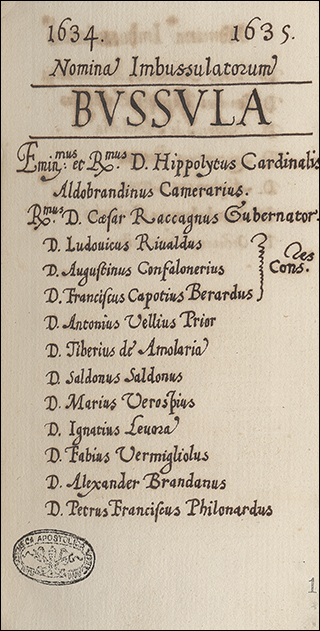 1634. 1635.
Nomina Imbussulatorum
BVSSVLA
Emin.mus et R.mus D. Hippolytus Cardinalis
Aldobrandinus Camerarius.
R.mus D. Cæsar Raccagnus Gubernator.
D. Ludouicus Riualdus
D. Augustinus Confalonerius
Cons.res
D. Franciscus Capotius Berardus
D. Antonius Vellius Prior
D. Tiberius de Amolaria
D. Saldonus Saldonus
D. Marius Verospius
D. Ignatius Leuora
D. Fabius Vermigliolus
D. Alexander Brandanus
D. Petrus Franciscus Philonardus
APOSTOLICA
1